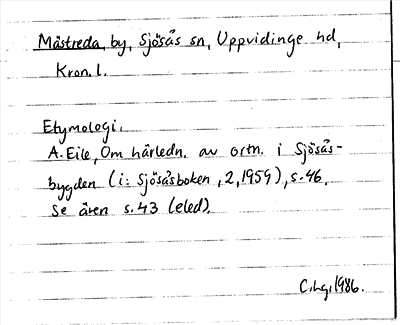 Måstreda, by, Sjösås sn, Uppvidinge hd,
Kron. l.
Etymologi.
A. Eile, Om härledn. av ortn. i Sjösås-
bygden (i: Sjösåsboken, 2, 1959), s. 46.
Se även s. 43 (eled).
1986.